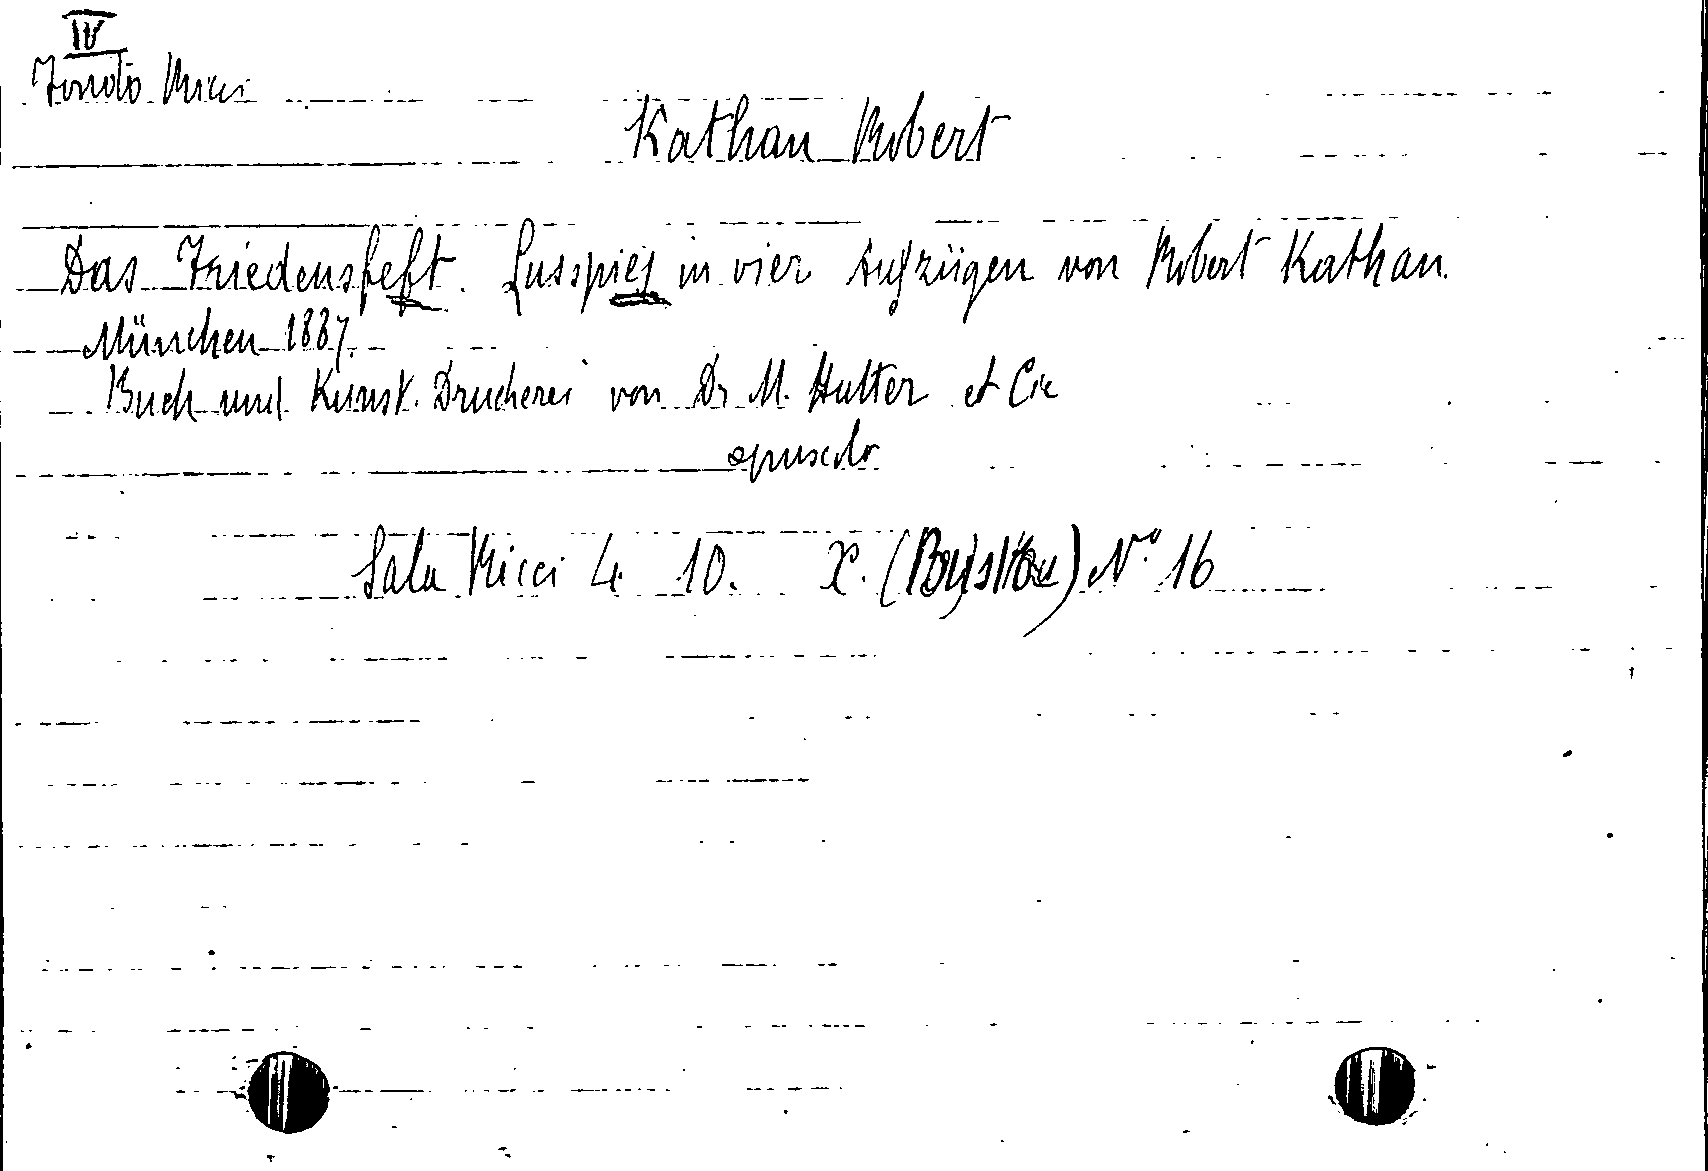 IV
Fondo Ricci
Kathan Robert
Das Friedensfeſt. Lusspiel in vier Aufzügen von Robert Kathan.
München 1887.
Buch und Kunst. Druckerei von Dr M. Hutter et Cie
opuscolo
Sala Ricci 4. 10. X. () N.º 16